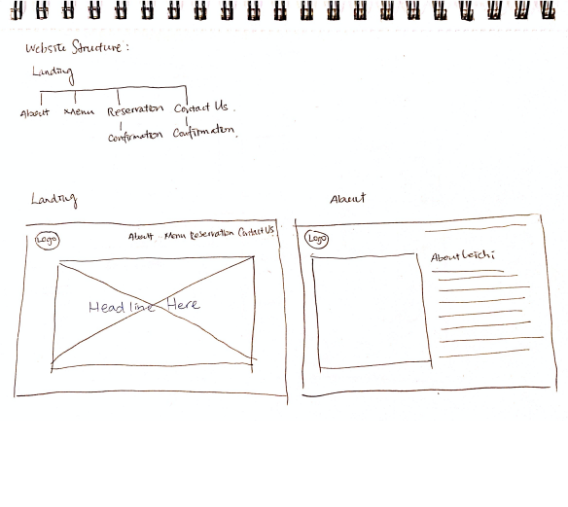 Website Structure:
Landing
About Menu Reservation Contact Us.
Confirmation Confirmation.
Landing
About
Logo About Menu Reservation Contact Us
Headline Here
Logo
About Leichi